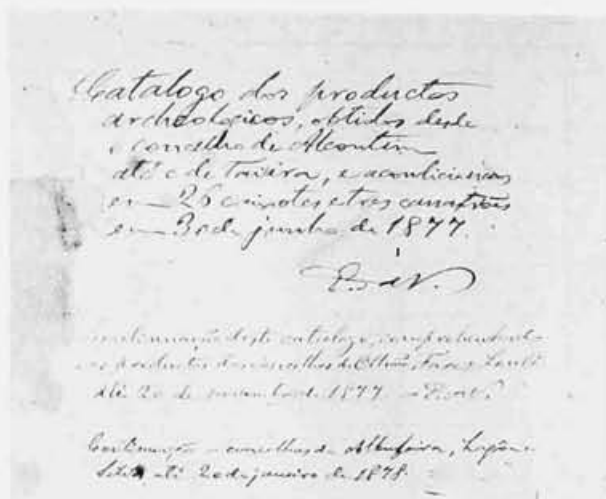 Catalogo dos productos
archeologicos, obtidos desde
o concelho de Alcoutim
até o de Tavira, e acondicionados
em 26 caixotes e tres canastras
em 30 de junho de 1877.
E. da V.
Continuação deste catalogo, comprehendendo
os productos dos concelhos de Olhão, Faro e Loulé
até 20 de novembro de 1877
Continuação – concelhos de Albufeira, Lagôa e
Silves, até 20 de janeiro de 1878.